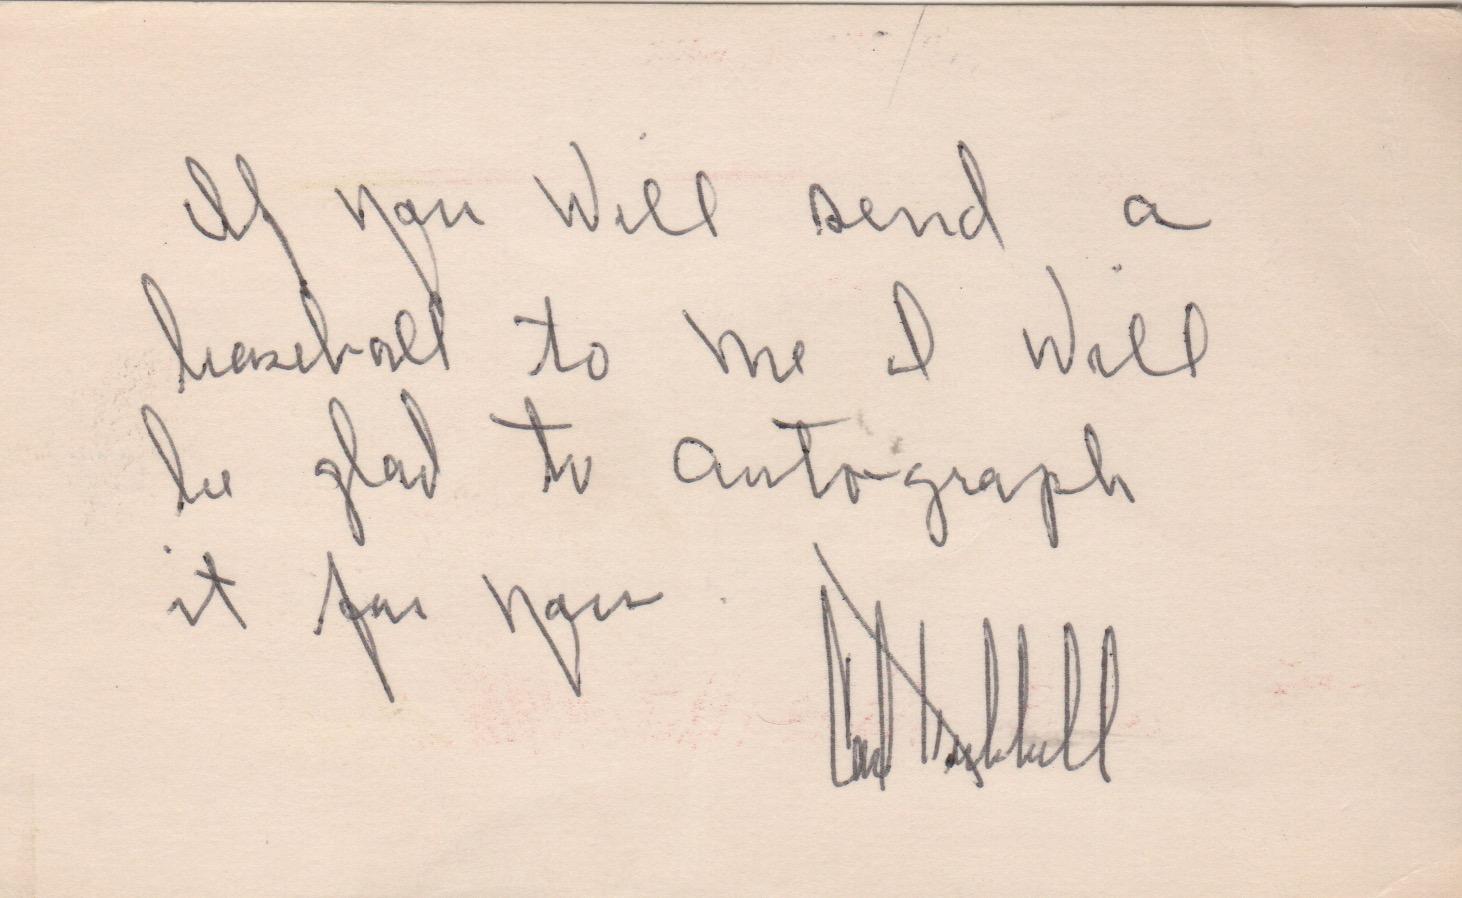 If you Will send a
baseball to me I Will
be glad to autograph
it for you.
Carl Hubbell